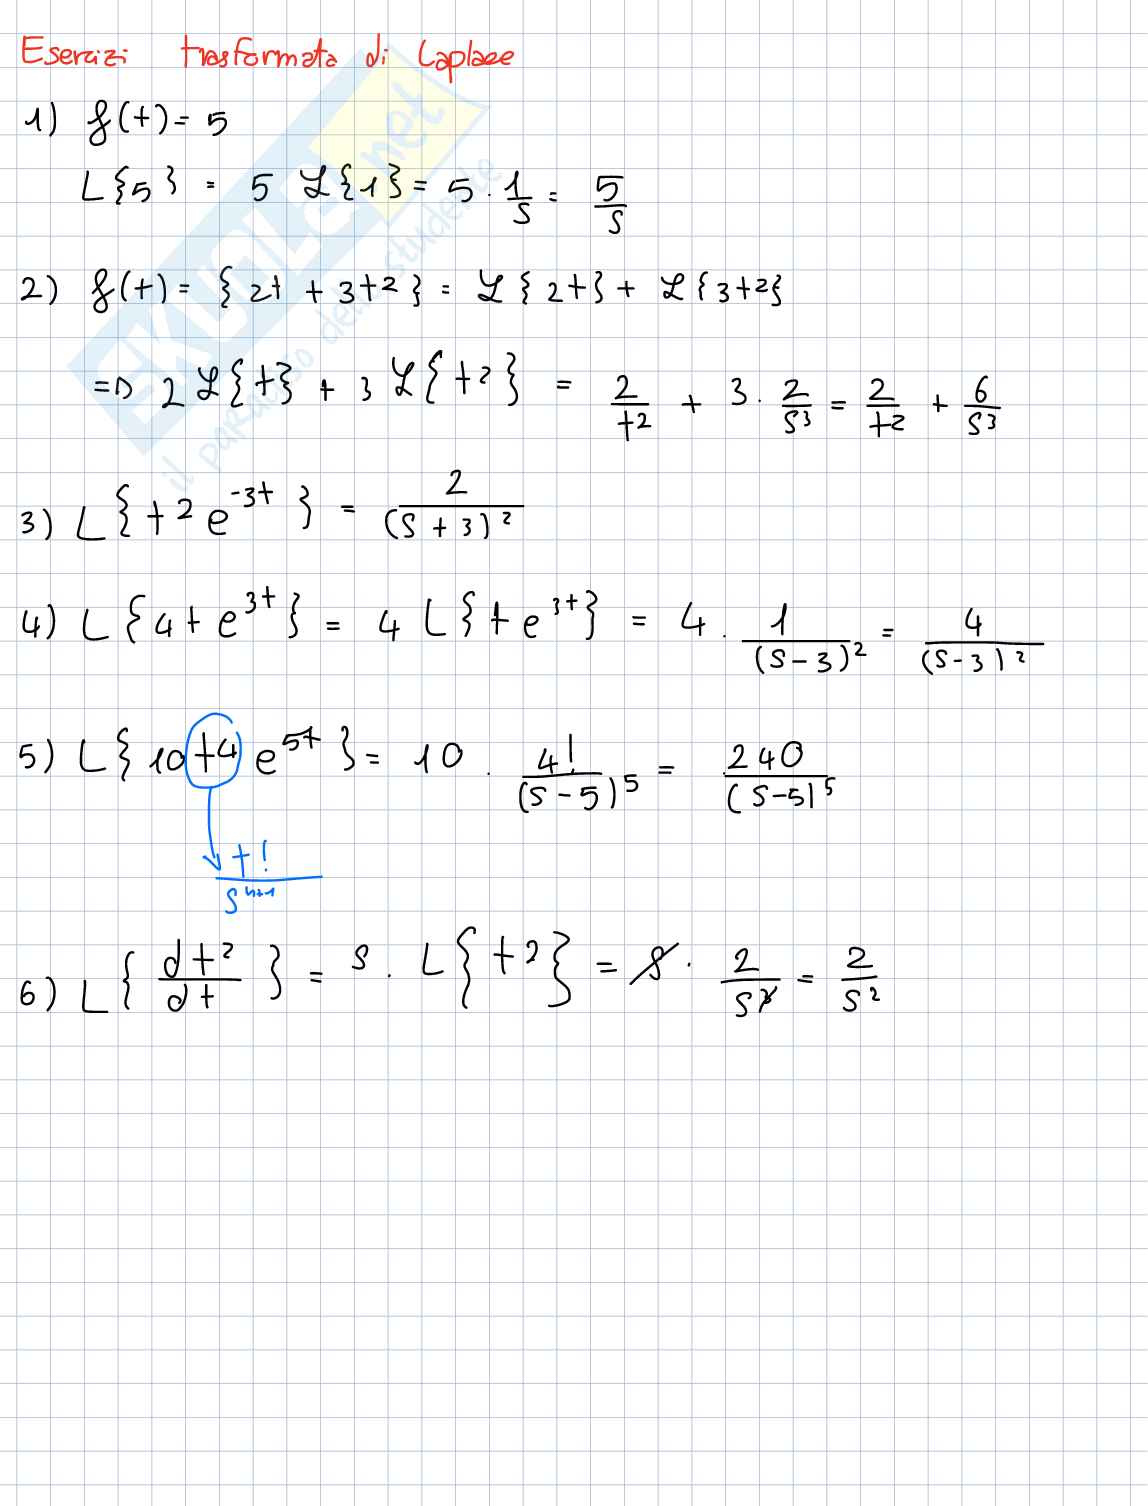 Esercizi trasformata di Laplace
1) f(t) = 5
L{5} = 5 ℒ{1} = 5 · 1/s = 5/s
2) f(t) = {2t + 3t²} = ℒ{2t} + ℒ{3t²}
=D 2ℒ{t} + 3ℒ{t²} = 2/t² + 3 · 2/s³ = 2/t² + 6/s³
3) L{t² e^-3t} = 2/(s + 3)²
4) L{4t e^3t} = 4 L{t e^3t} = 4 · 1/(s - 3)² = 4/(s - 3)²
5) L{10t4 e^5t} = 10 · 4!/(s - 5)^5 = 240/(s - 5)^5
t!/s^n+1
6) L{dt²/dt} = s · L{t²} = s · 2/s³ = 2/s²
SKUOLA.net
il paradiso dello studente